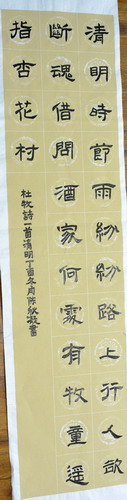 清明時節雨紛紛路上行人欲
斷魂借問酒家何處有牧童遥
指杏花村
杜牧詩一首清明丁酉冬月陈紋凝書